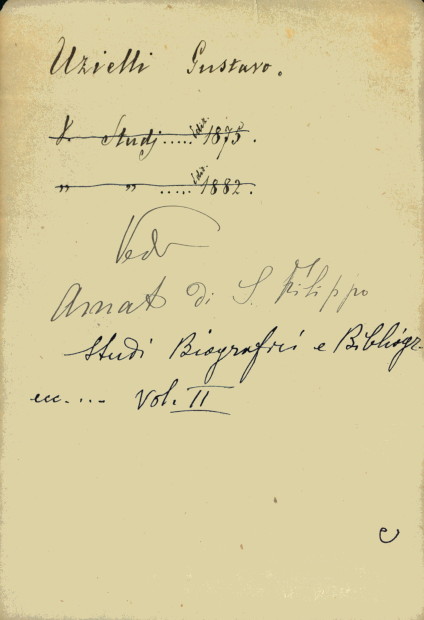 Uzielli Gustavo.
V. Studj ..... ediz. 1875.
„ „ ..... ediz. 1882.
Vedi
Amat di S. Filippo
Studi Biografici e Bibliogr.
ecc. ... Vol. II
e